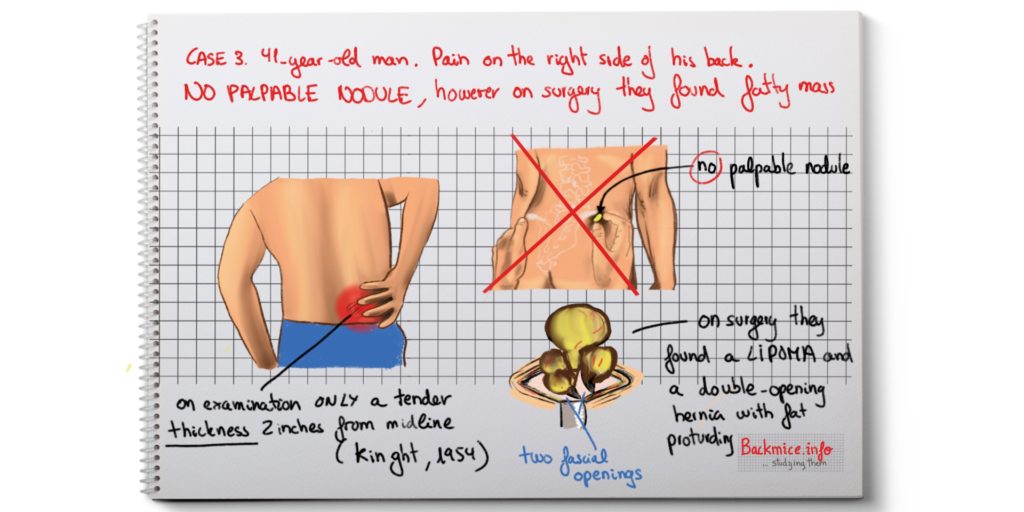 CASE 3. 41-year-old man. Pain on the right side of his back.
NO PALPABLE NODULE, however on surgery they found fatty mass
no palpable nodule
on examination ONLY a tender
thickness 2 inches from midline
(Kinght, 1954)
on surgery they
found a LIPOMA and
a double-opening
hernia with fat
proturding
two fascial
openings
Backmice.info
... studying them